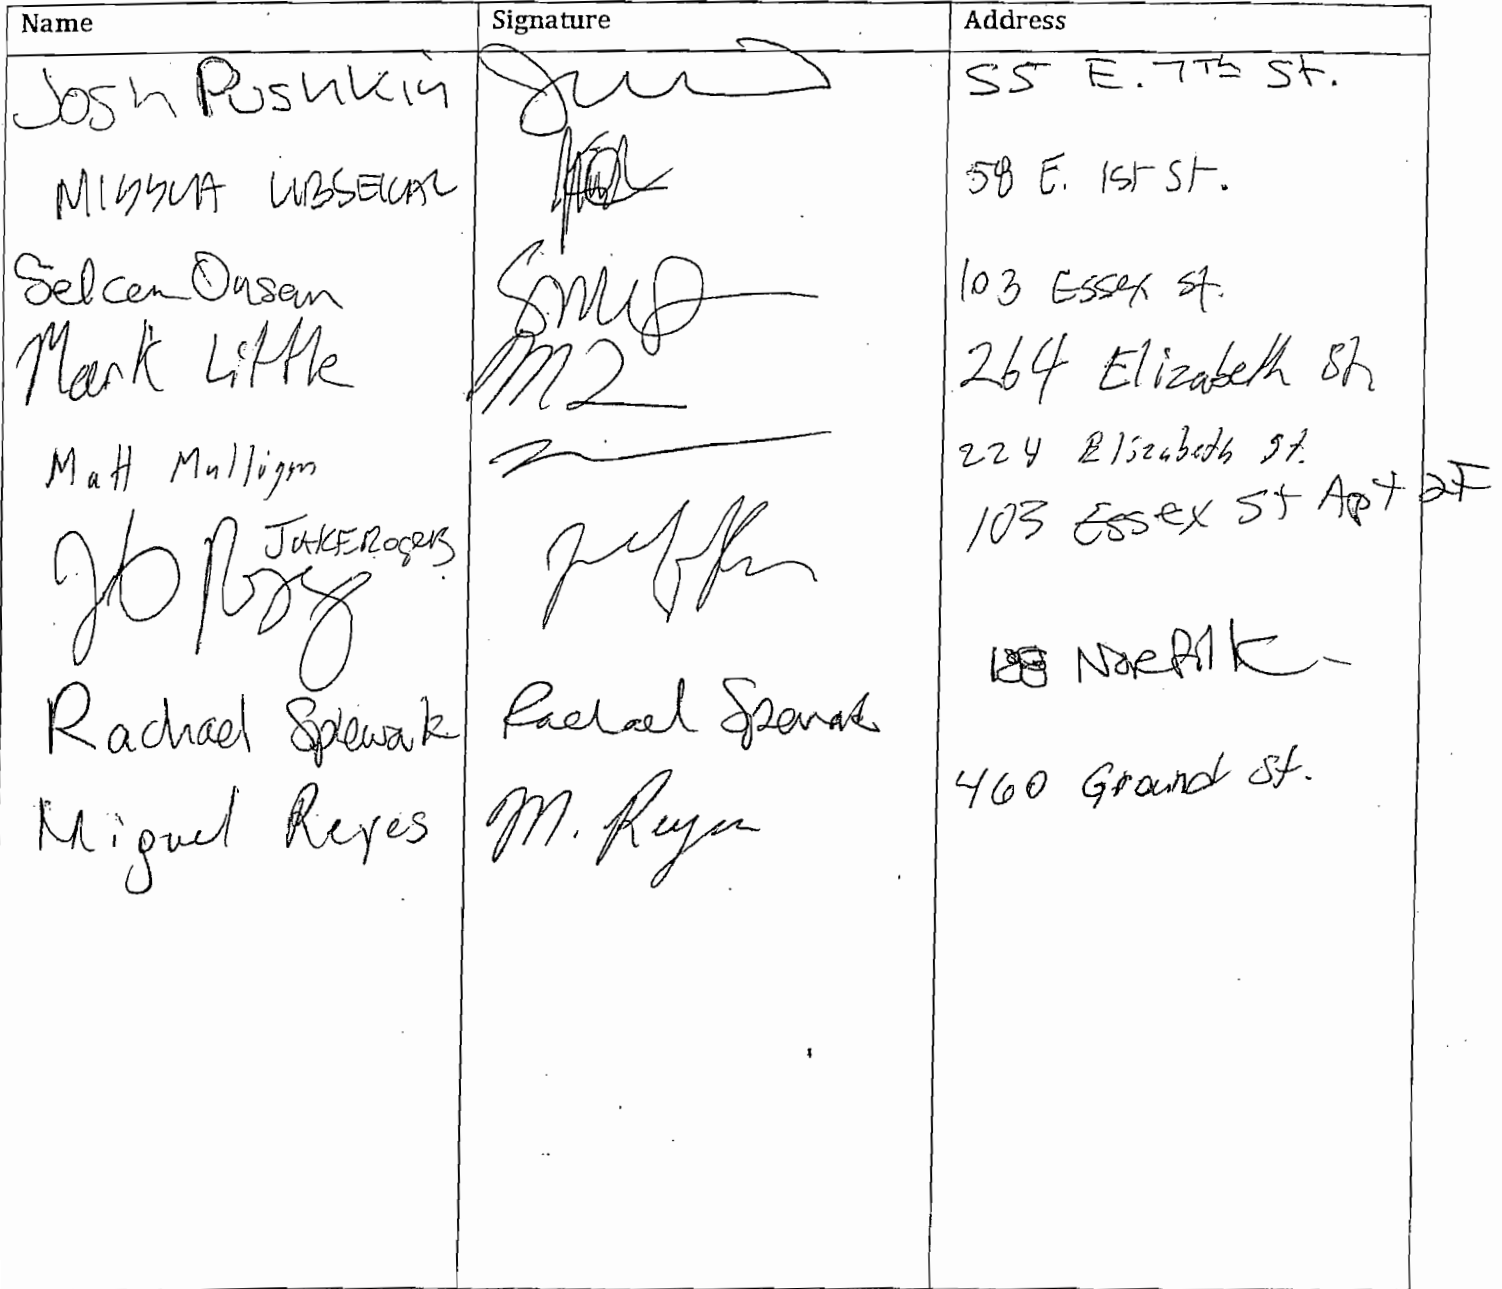 Name Signature Address
Josh Pushkin 55 E. 7Th St.
58 E. 1st St.
Selcen Onsan 103 Essex st.
Mark Little M L 264 Elizabeth St
Matt Mulligan 224 Elizabeth St.
JAKE Rogers 103 Essex St Apt 2F
Rachael Spewak Rachael Spewak Norfolk
Miguel Reyes M. Reyes 460 Grand St.